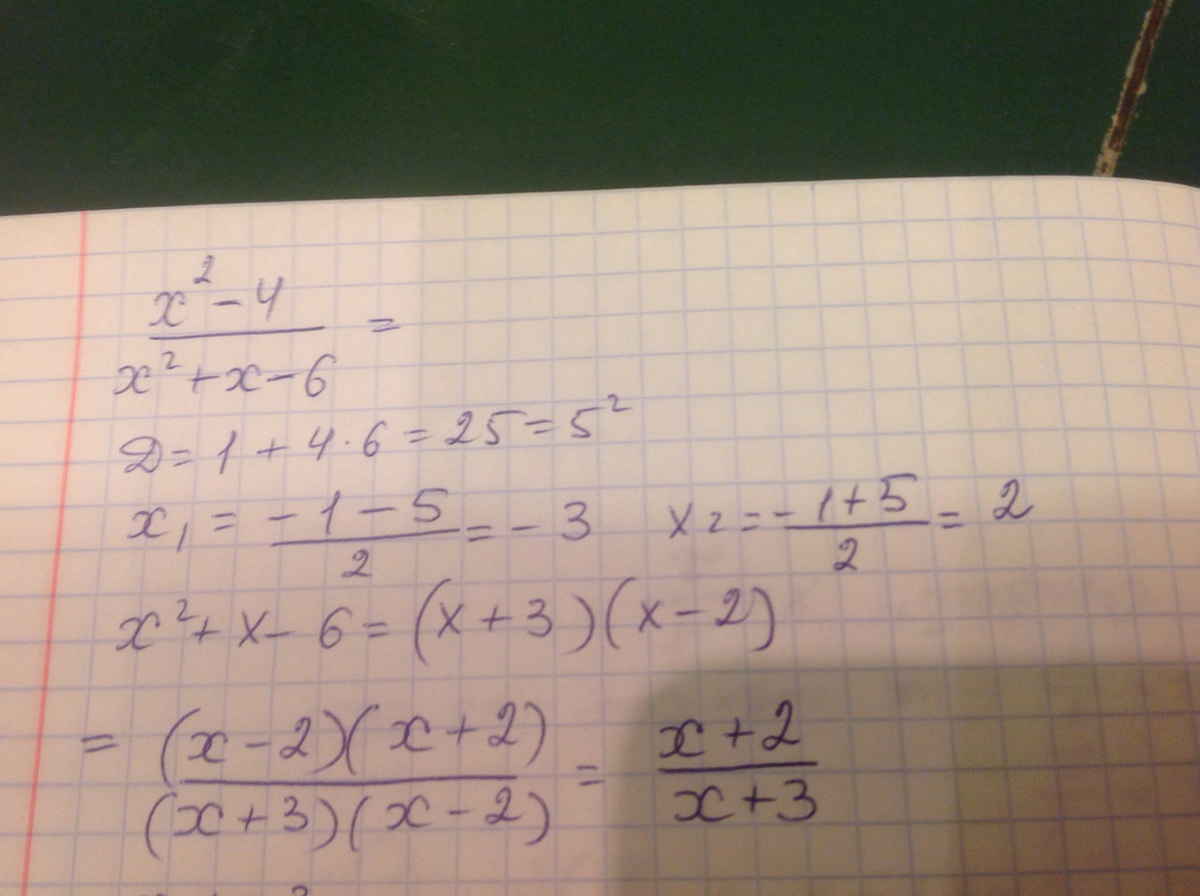 x² - 4
———— =
x² + x - 6
D = 1 + 4 · 6 = 25 = 5²
x₁ = (-1 - 5)/2 = -3   x₂ = (-1 + 5)/2 = 2
x² + x - 6 = (x + 3)(x - 2)
= (x - 2)(x + 2)/(x + 3)(x - 2) = (x + 2)/(x + 3)